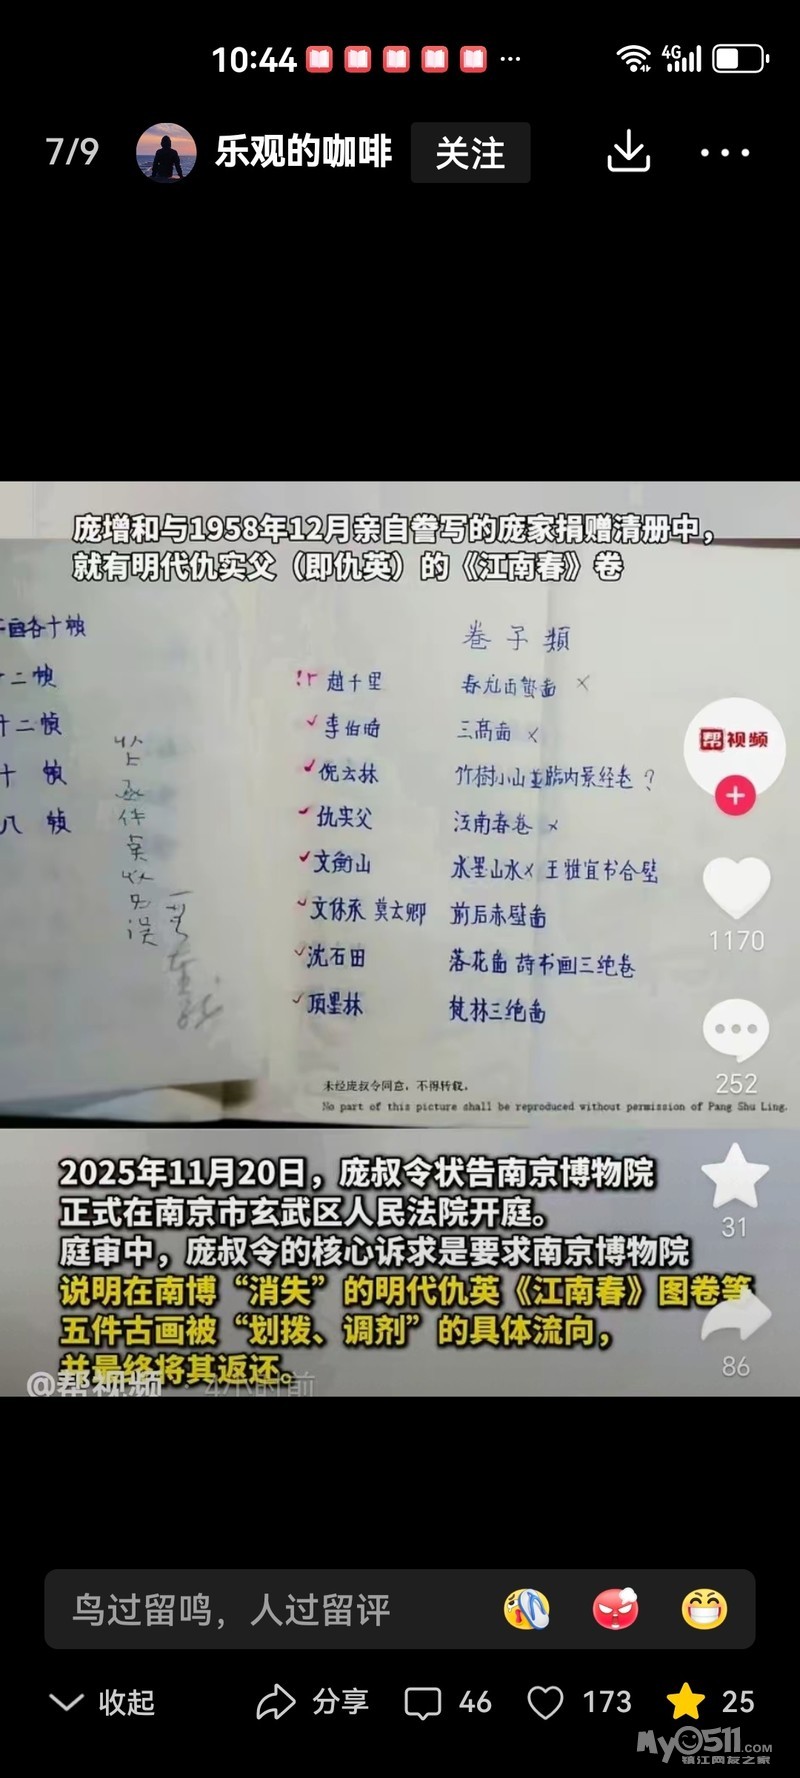 10:44
4G
7/9
乐观的咖啡
关注
庞增和与1958年12月亲自誊写的庞家捐赠清册中，
就有明代仇实父（即仇英）的《江南春》卷
画各十帧
十二帧
十二帧
十 帧
八 帧
卷子類
赵千里
李伯时 三高图 ×
倪云林 竹樹小山並臨内景经卷 ?
仇实父 江南春卷 ×
文衡山 水墨山水× 王雅宜书合壁
文休承 莫云卿 前后赤壁图
沈石田 落花图 詩书画三绝卷
项墨林 梵林三绝图
未经庞叔令同意，不得转载。
No part of this picture shall be reproduced without permission of Pang Shu Ling.
帮视频
1170
252
31
86
2025年11月20日，庞叔令状告南京博物院
正式在南京市玄武区人民法院开庭。
庭审中，庞叔令的核心诉求是要求南京博物院
说明在南博“消失”的明代仇英《江南春》图卷等
五件古画被“划拨、调剂”的具体流向，
并最终将其返还。
@帮视频 · 4小时前
鸟过留鸣，人过留评
收起
分享
46
173
25
My0511.COM
镇江网友之家